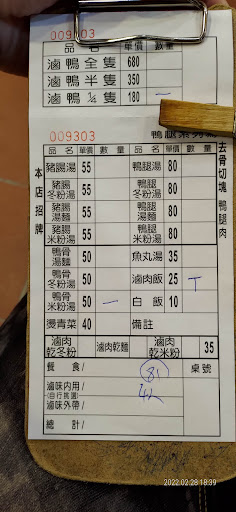 009303
品 名 單價 數 量
滷鴨全隻 680
滷鴨半隻 350
滷鴨¼隻 180 一
009303
本店招牌
去骨切塊 鴨腿肉
品 名 單價 數 量 品 名 單價 數 量
豬腸湯 55 鴨腿湯 80
豬腸冬粉湯 55 鴨腿冬粉湯 80
豬腸湯麵 55 鴨腿湯麵 80
豬腸米粉湯 55 鴨腿米粉湯 80
鴨骨湯麵 50 魚丸湯 35
鴨骨冬粉湯 50 滷肉飯 25 T
鴨骨米粉湯 50 一 白 飯 10
燙青菜 40 備註
滷肉乾冬粉 滷肉乾麵 滷肉乾米粉 35
餐 食/ 桌號
滷味內用/
(自行挑選)
滷味外帶/
總 計/
81
2022.02.28 18:39